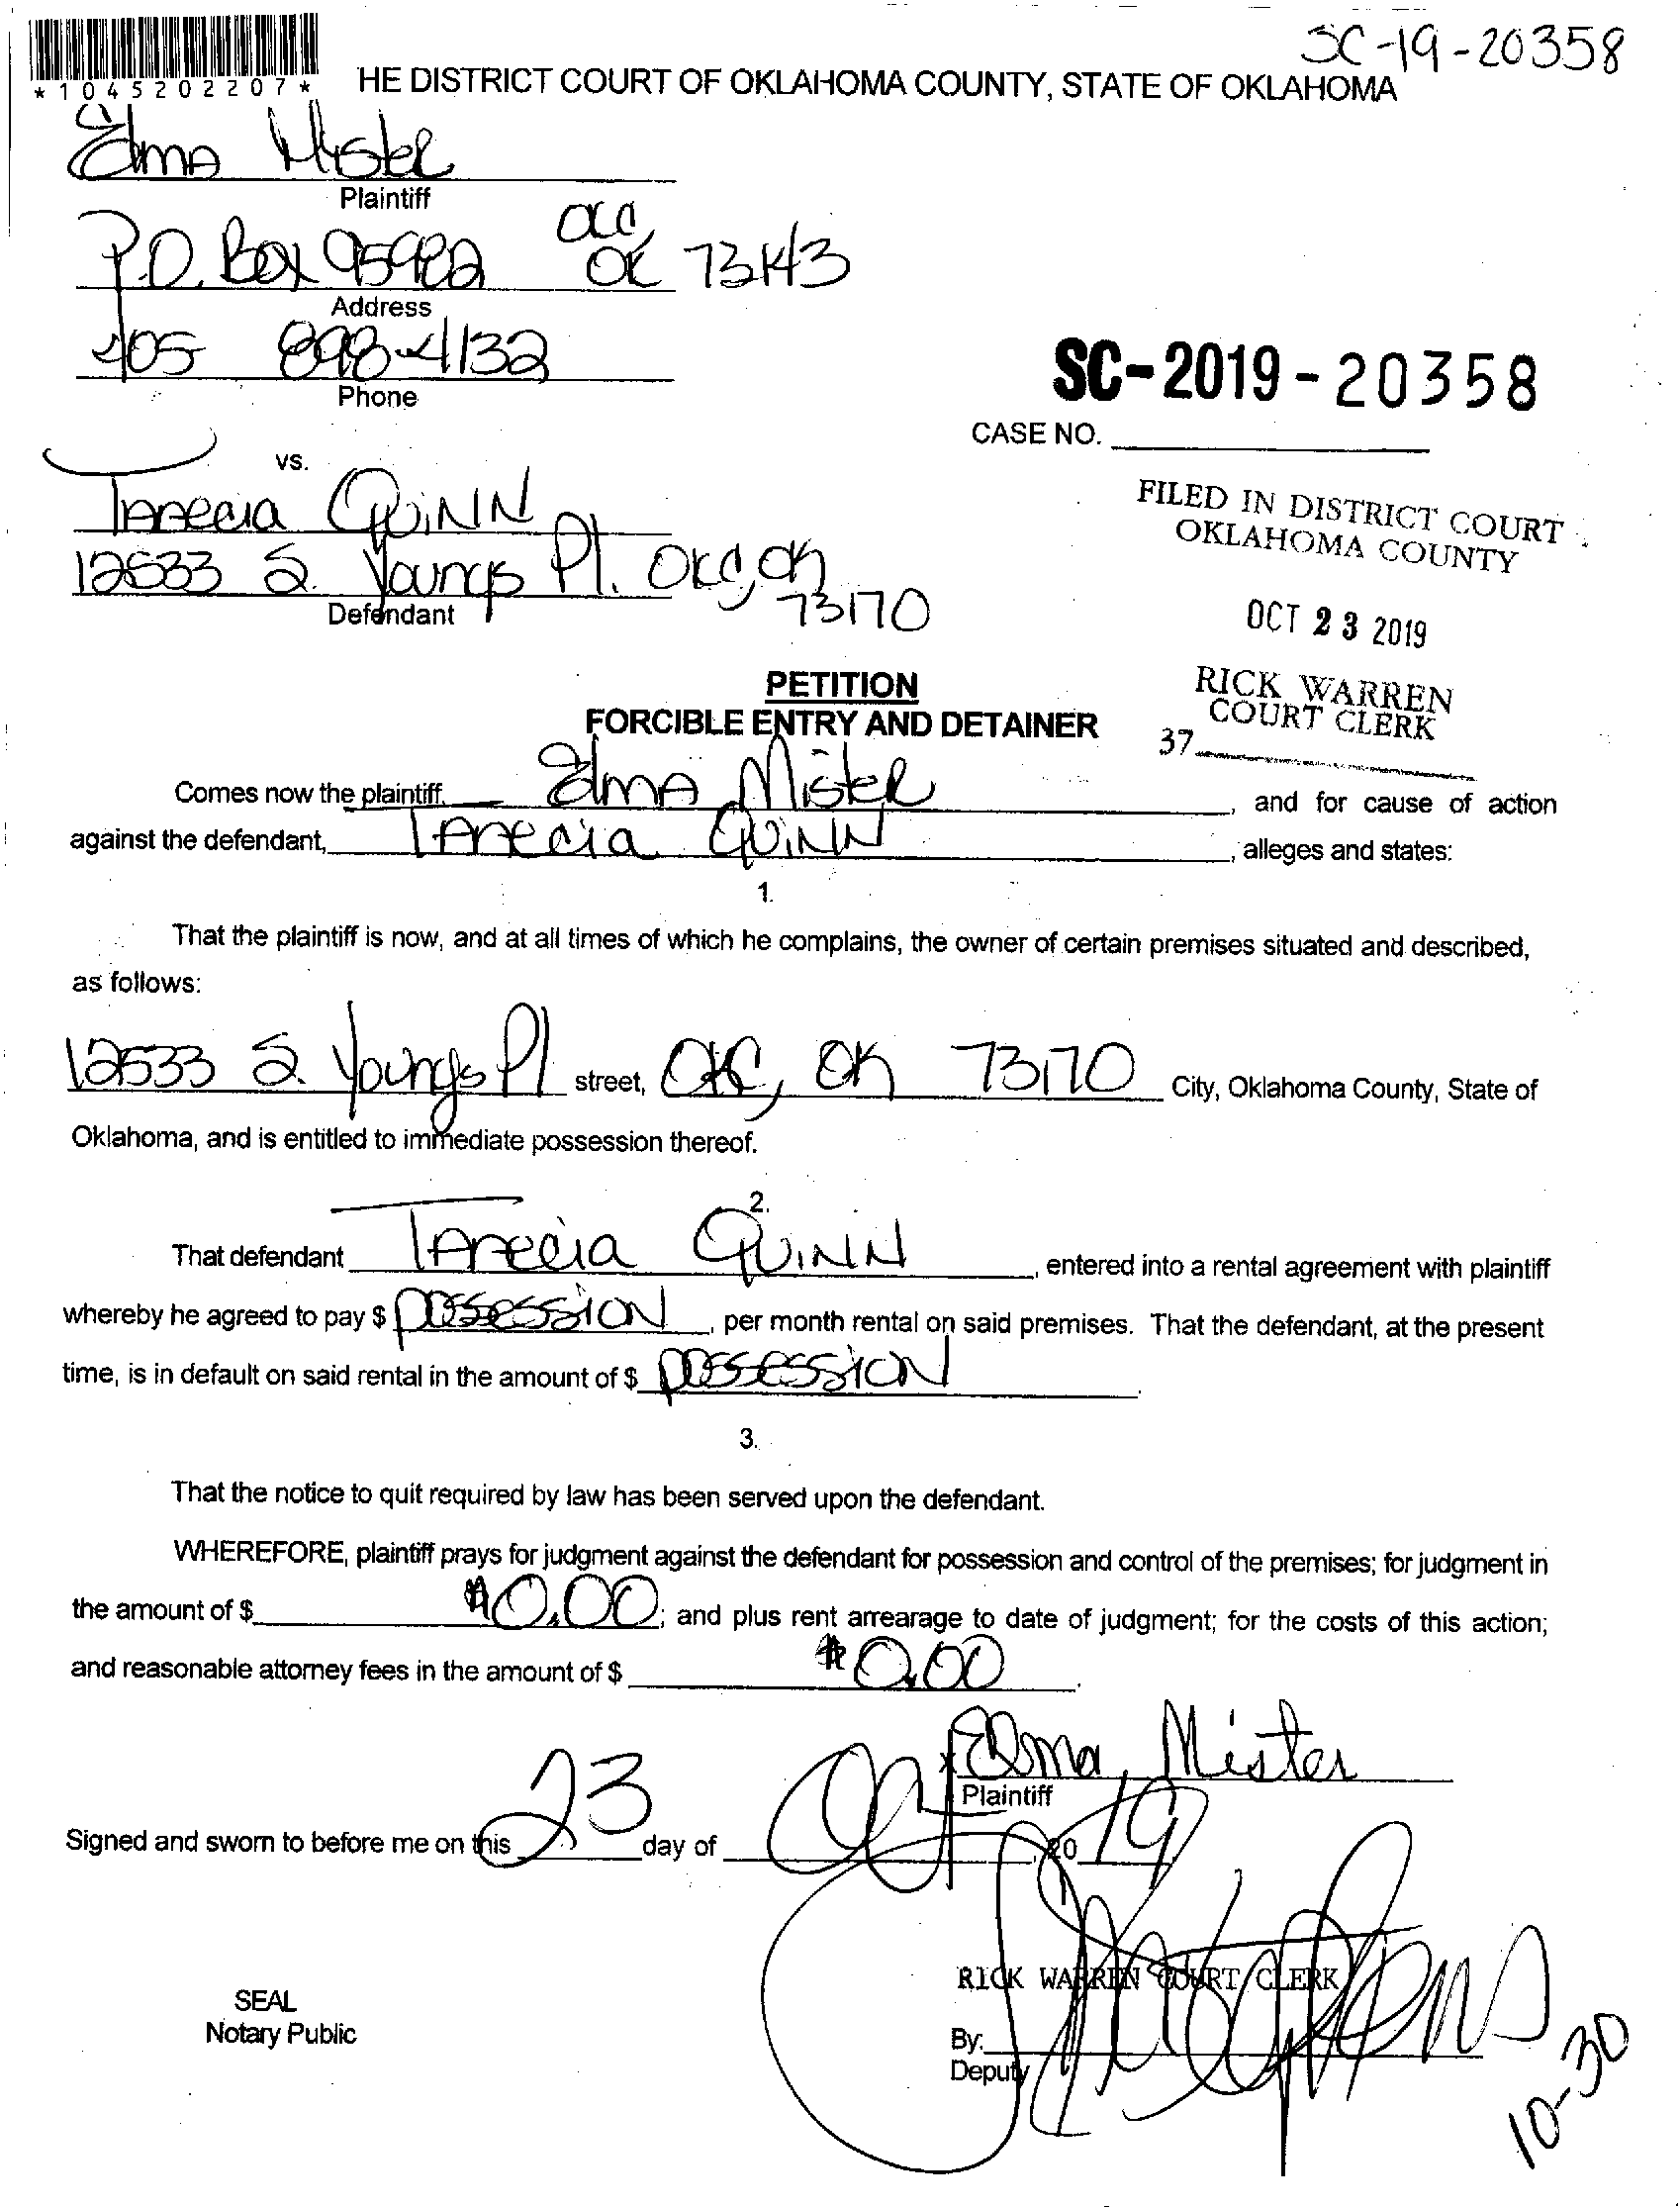 SC-19-20358
*1045202207*
HE DISTRICT COURT OF OKLAHOMA COUNTY, STATE OF OKLAHOMA
Elma Mister
Plaintiff
P.O. Box 95982 OKC, OK 73143
Address
405 898-4132
Phone
SC-2019-20358
CASE NO.
vs.
Tarecia Quinn
12533 S. Youngs Pl. OKC, OK 73170
Defendant
FILED IN DISTRICT COURT
OKLAHOMA COUNTY
OCT 23 2019
RICK WARREN
COURT CLERK
37
PETITION
FORCIBLE ENTRY AND DETAINER
Comes now the plaintiff, Elma Mister, and for cause of action
against the defendant, Tarecia Quinn, alleges and states:
1.
That the plaintiff is now, and at all times of which he complains, the owner of certain premises situated and described,
as follows:
12533 S. Youngs Pl street, OKC, OK 73170 City, Oklahoma County, State of
Oklahoma, and is entitled to immediate possession thereof.
2.
That defendant Tarecia Quinn, entered into a rental agreement with plaintiff
whereby he agreed to pay $ possession, per month rental on said premises. That the defendant, at the present
time, is in default on said rental in the amount of $ possession.
3.
That the notice to quit required by law has been served upon the defendant.
WHEREFORE, plaintiff prays for judgment against the defendant for possession and control of the premises; for judgment in
the amount of $ $0.00; and plus rent arrearage to date of judgment; for the costs of this action;
and reasonable attorney fees in the amount of $ $0.00.
x Elma Mister
Plaintiff
Signed and sworn to before me on this 23 day of Oct, 2019
RICK WARREN COURT CLERK
SEAL
Notary Public
By:
Deputy
10-30